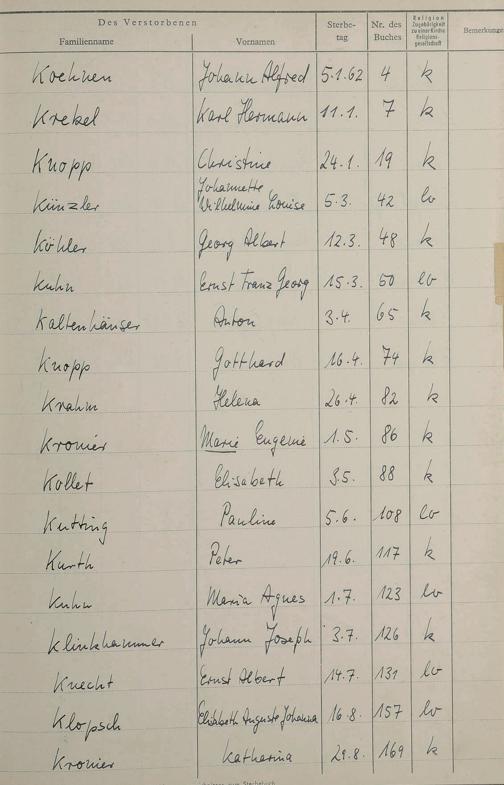 Des Verstorbenen
Familienname Vornamen Sterbe-tag Nr. des Buches Religion Zugehörigkeit zu einer Kirche Religions-gesellschaft Bemerkunge
Koehnen Johann Alfred 5.1.62 4 k
Krekel Karl Hermann 11.1. 7 k
Knopp Christine 24.1. 19 k
Künzler Johannette Wilhelmine Louise 5.3. 42 ev
Köhler Georg Albert 12.3. 48 k
Kuhn Ernst Franz Georg 15.3. 50 ev
Kaltenhäuser Anton 3.4. 65 k
Knopp Gotthard 16.4. 74 k
Krahm Helena 26.4. 82 k
Kronier Marie Eugenie 1.5. 86 k
Kollet Elisabeth 3.5. 88 k
Kutting Pauline 5.6. 108 ev
Kurth Peter 19.6. 117 k
Kuhn Maria Agnes 1.7. 123 ev
Klinkhammer Johann Joseph 3.7. 126 k
Knecht Ernst Albert 14.7. 131 ev
Klopsch Elisabeth Auguste Johanna 16.8. 157 ev
Kronier Katharina 29.8. 169 k